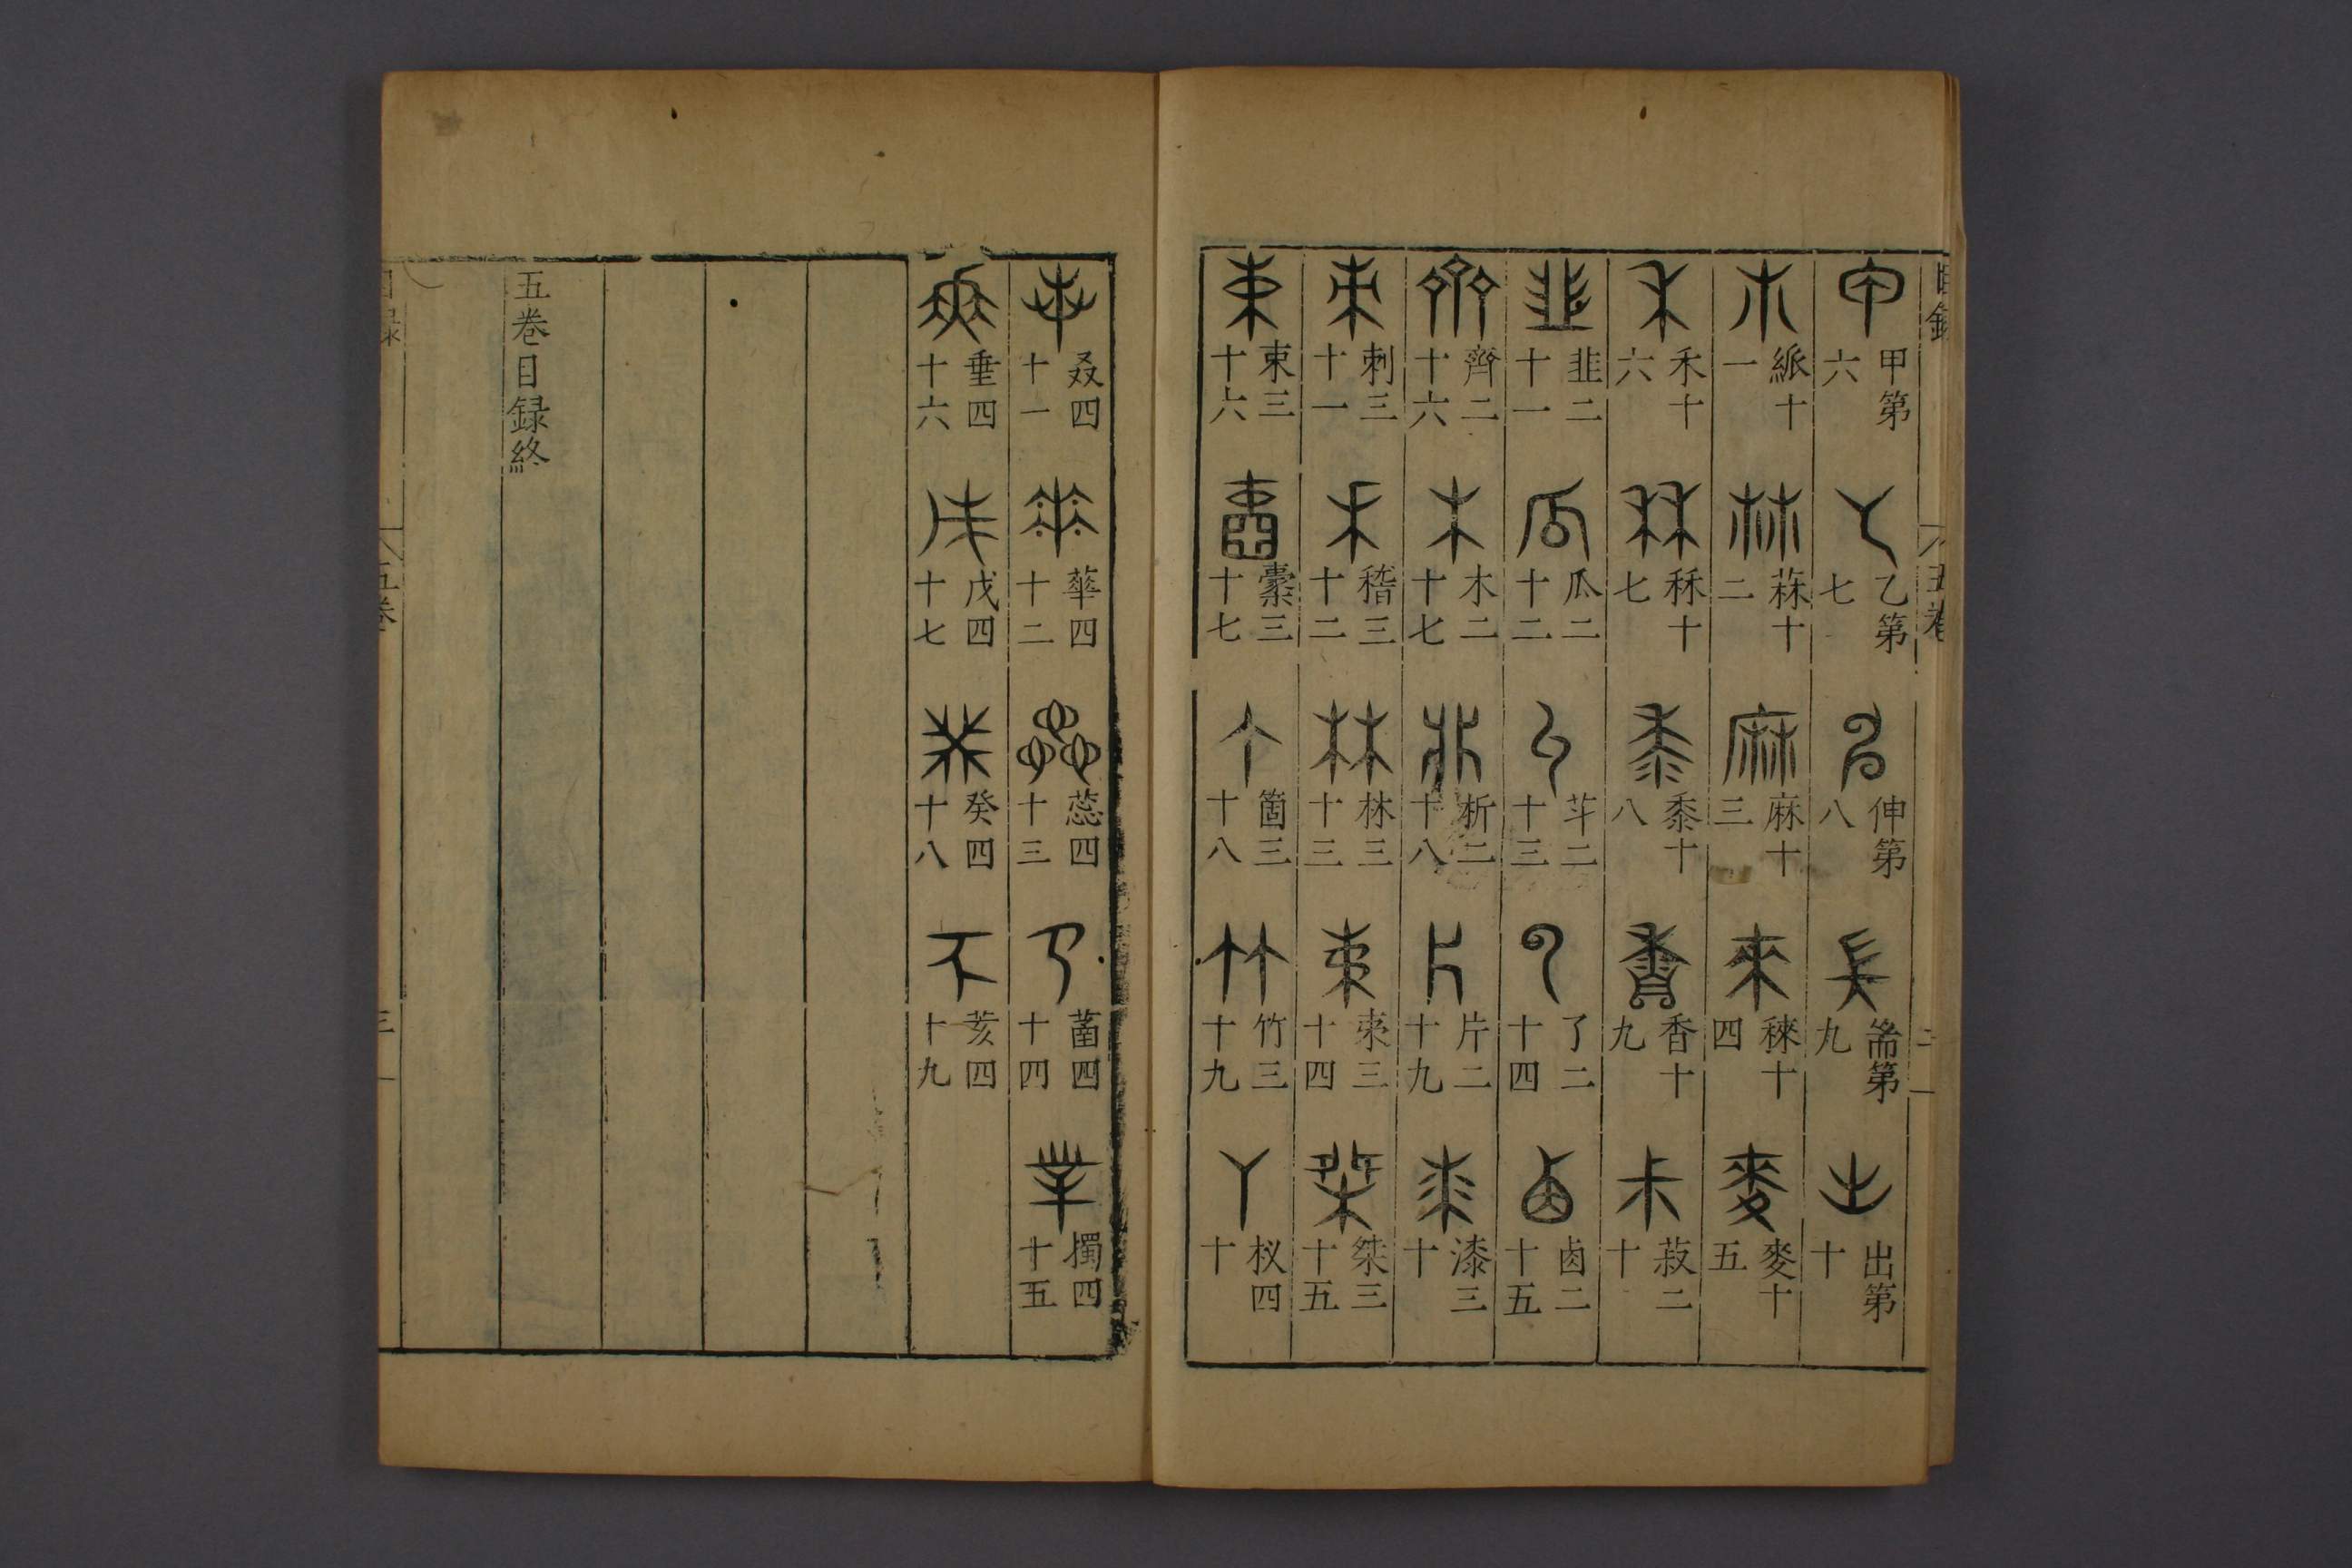 甲第六 乙第七 伸第八 第九 出第十
十一 菻十二 麻十三 䅘十四 麥十五
禾十六 秝十七 黍十八 香十九 菽二十
韭二十一 瓜二十二 二十三 了二十四 卥二十五
齊二十六 木二十七 析二十八 片二十九 漆三十
刺三十一 稽三十二 林三十三 三十四 桀三十五
東三十六 橐三十七 箇三十八 竹三十九 杈四十
叒四十一 華四十二 蕊四十三 四十四 四十五
垂四十六 戊四十七 癸四十八 亥四十九
五卷目録終
目録 五卷 三